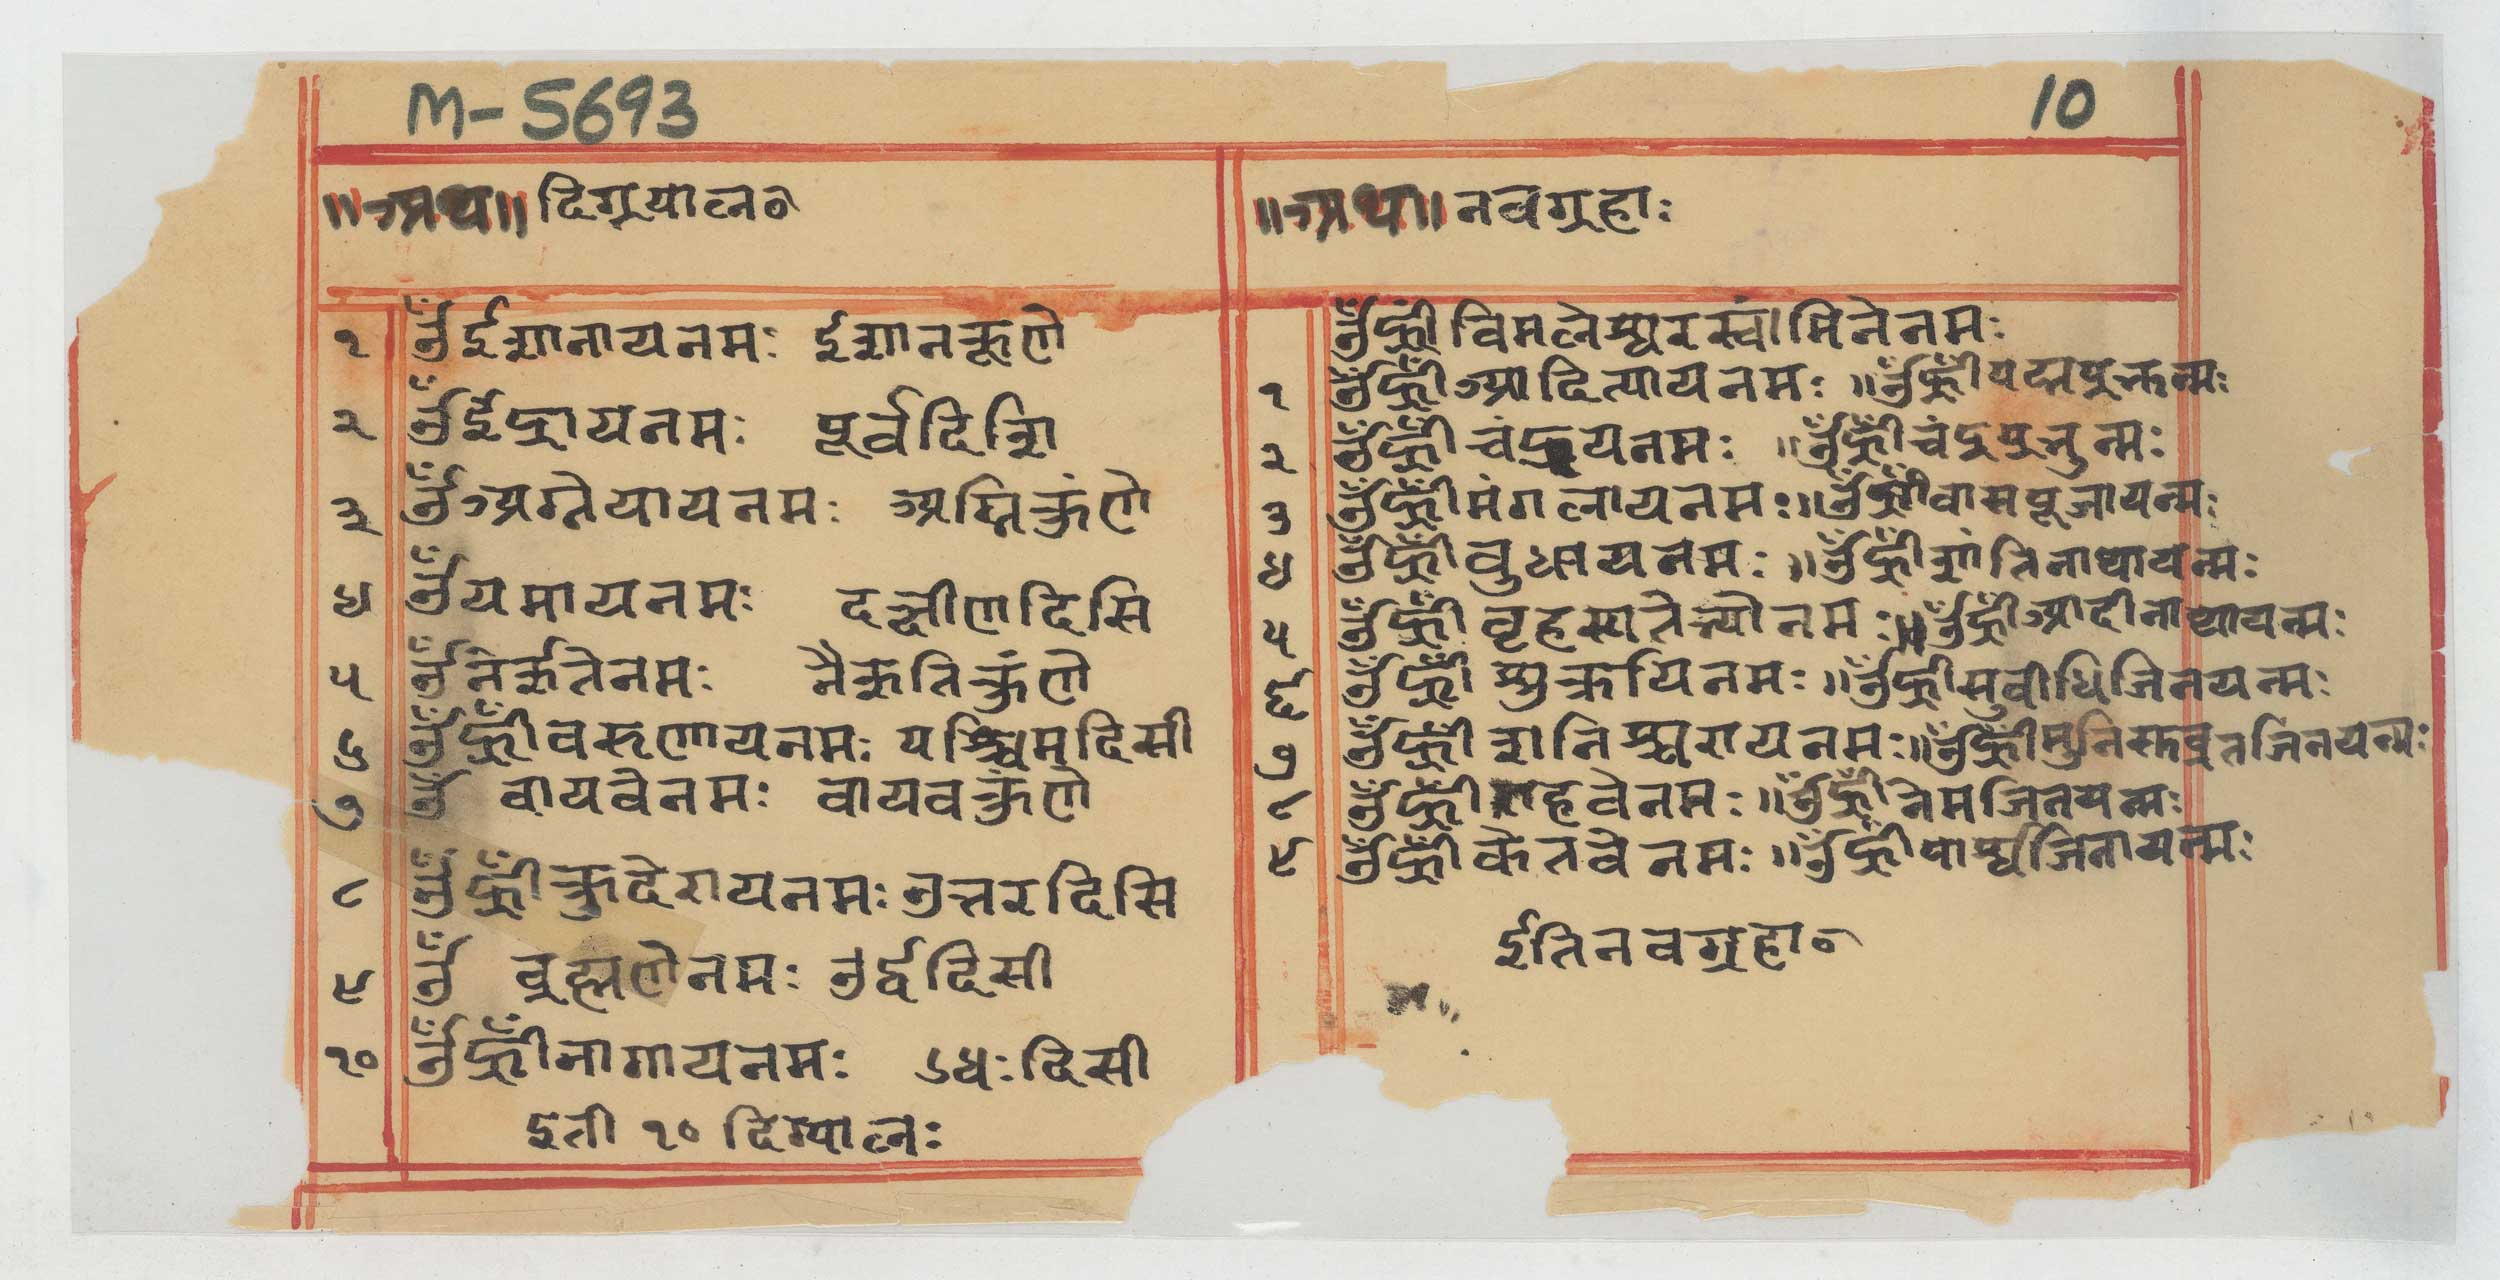 M-5693
10
॥अथ॥ दिग्पाल०
१ ॐ ईशानायनमः ईशानकूणे
२ ॐ ईंद्रायनमः पूर्वदिशि
३ ॐ अग्नेयायनमः अग्निकुंणे
४ ॐ यमायनमः दक्षीणदिसि
५ ॐ नैरुतेनमः नैरुतिकुंणे
६ ॐ ह्रीं वरुणायनमः पश्चिमदिसी
७ ॐ वायवेनमः वायवकुंणे
८ ॐ ह्रीं कुबेरायनमः उत्तरदिसि
९ ॐ ब्रह्मणेनमः उर्द्वदिसी
१० ॐ ह्रीं नागायनमः ऽधःदिसी
इती १० दिग्पालः
॥अथ॥ नवग्रहाः
ॐ ह्रीं विमलेश्वरस्वांमिनेनमः
१ ॐ ह्रीं आदित्यायनमः ॥ ॐ ह्रीं पद्मप्रभुन्मः
२ ॐ ह्रीं चंद्रायनमः ॥ ॐ ह्रीं चंद्रप्रभुन्मः
३ ॐ ह्रीं मंगलायनमः ॥ ॐ ह्रीं वासपूजायन्मः
४ ॐ ह्रीं बुधायनमः ॥ ॐ ह्रीं शांतिनाथायन्मः
५ ॐ ह्रीं बृहस्पतेभ्योनमः ॥ ॐ ह्रीं आदीनाथायन्मः
६ ॐ ह्रीं शुक्रायनमः ॥ ॐ ह्रीं सुवीधिजिनयन्मः
७ ॐ ह्रीं शनिश्चरायनमः ॥ ॐ ह्रीं मुनिसुव्रतजिनयन्मः
८ ॐ ह्रीं राहवेनमः ॥ ॐ ह्रीं नेमजिनयन्मः
९ ॐ ह्रीं केतवेनमः ॥ ॐ ह्रीं पार्श्वजिनायन्मः
ईतिनवग्रहा०